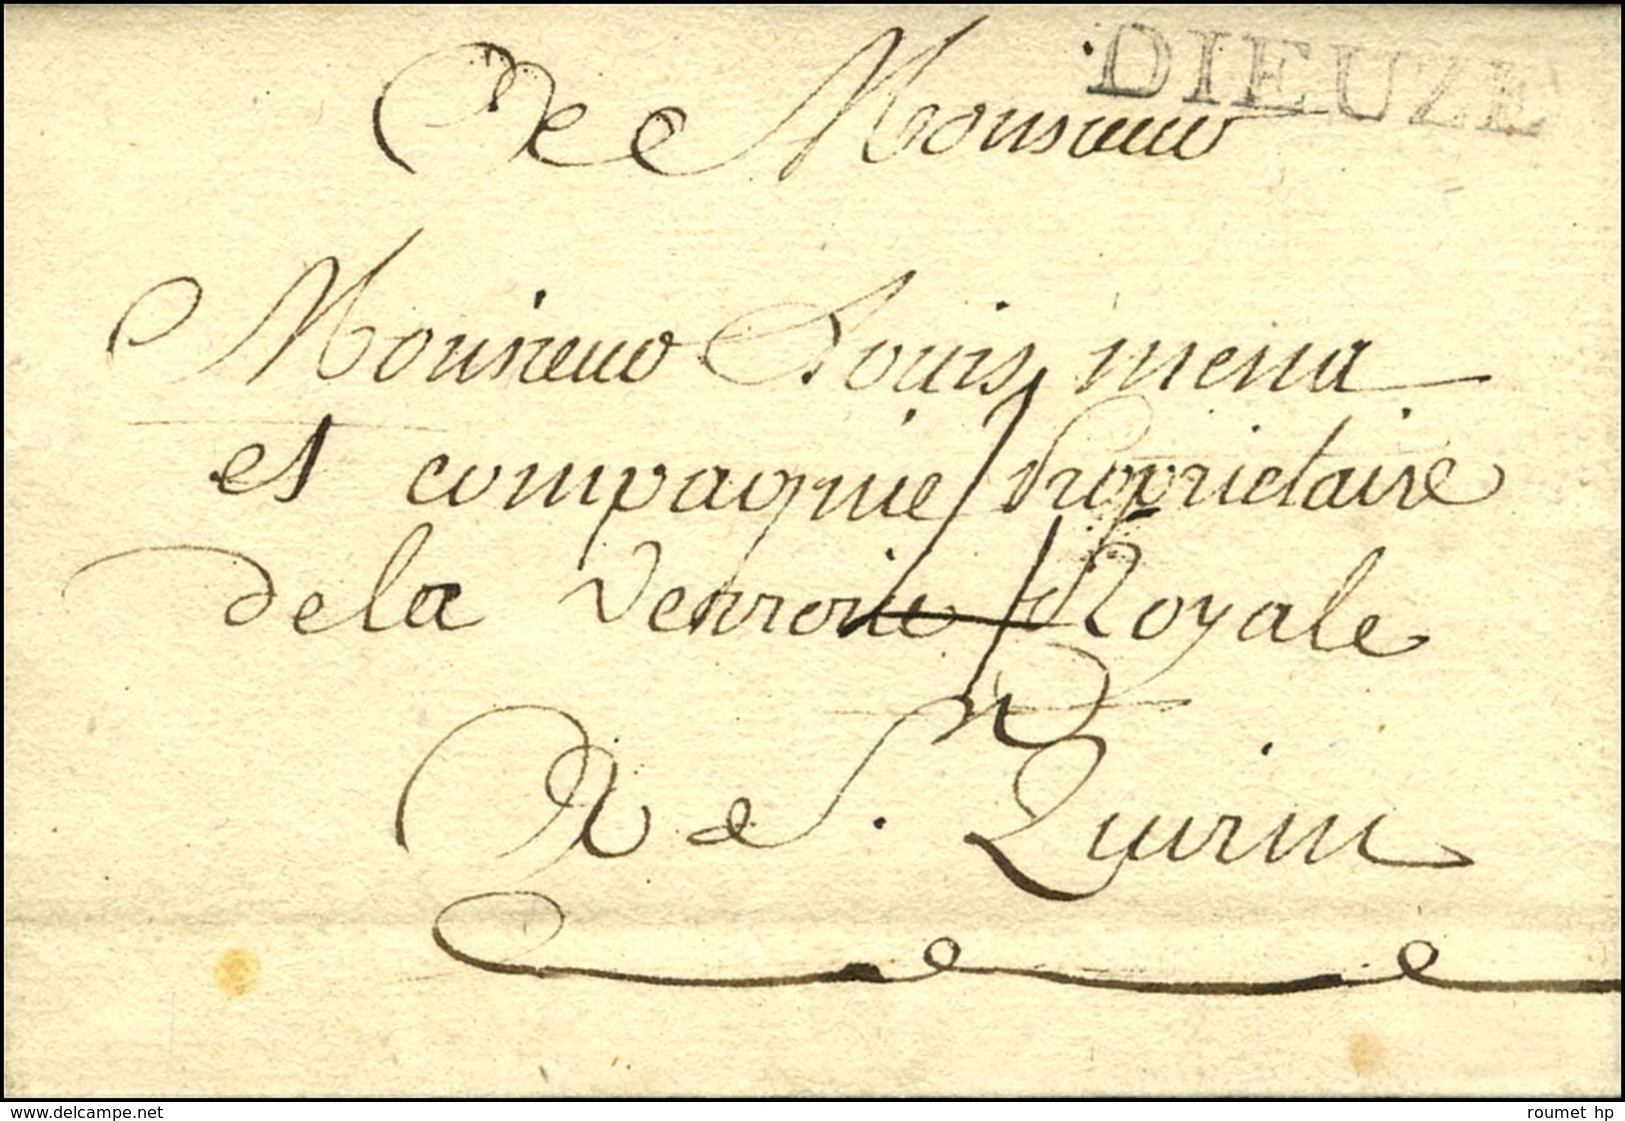 DIEUZE
A Monsieur
Monsieur Louis mena
et compagnie Propriétaire
de la Verrorie Royale
A de St. Quirin
www.delcampe.net
roumet hp